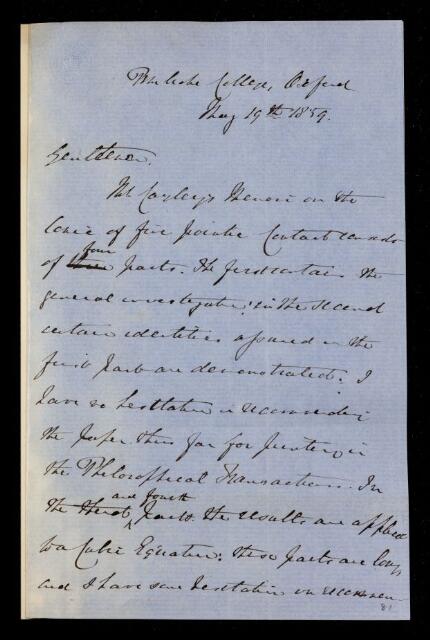 Pembroke College, Oxford
May 19th 1859.
Gentlemen.
Mr Cayley's Memoir on the
Conic of five pointic Contact consists
of three four parts. The first contains the
general investigation: in the second
certain identities assumed in the
first part are demonstrated. I
have no hesitation in recommending
the paper thus far for printing in
the Philosophical Transactions. In
the third and fourth parts the results are applied
to a Cubic Equation: these parts are long
and I have some hesitation in recommen
81